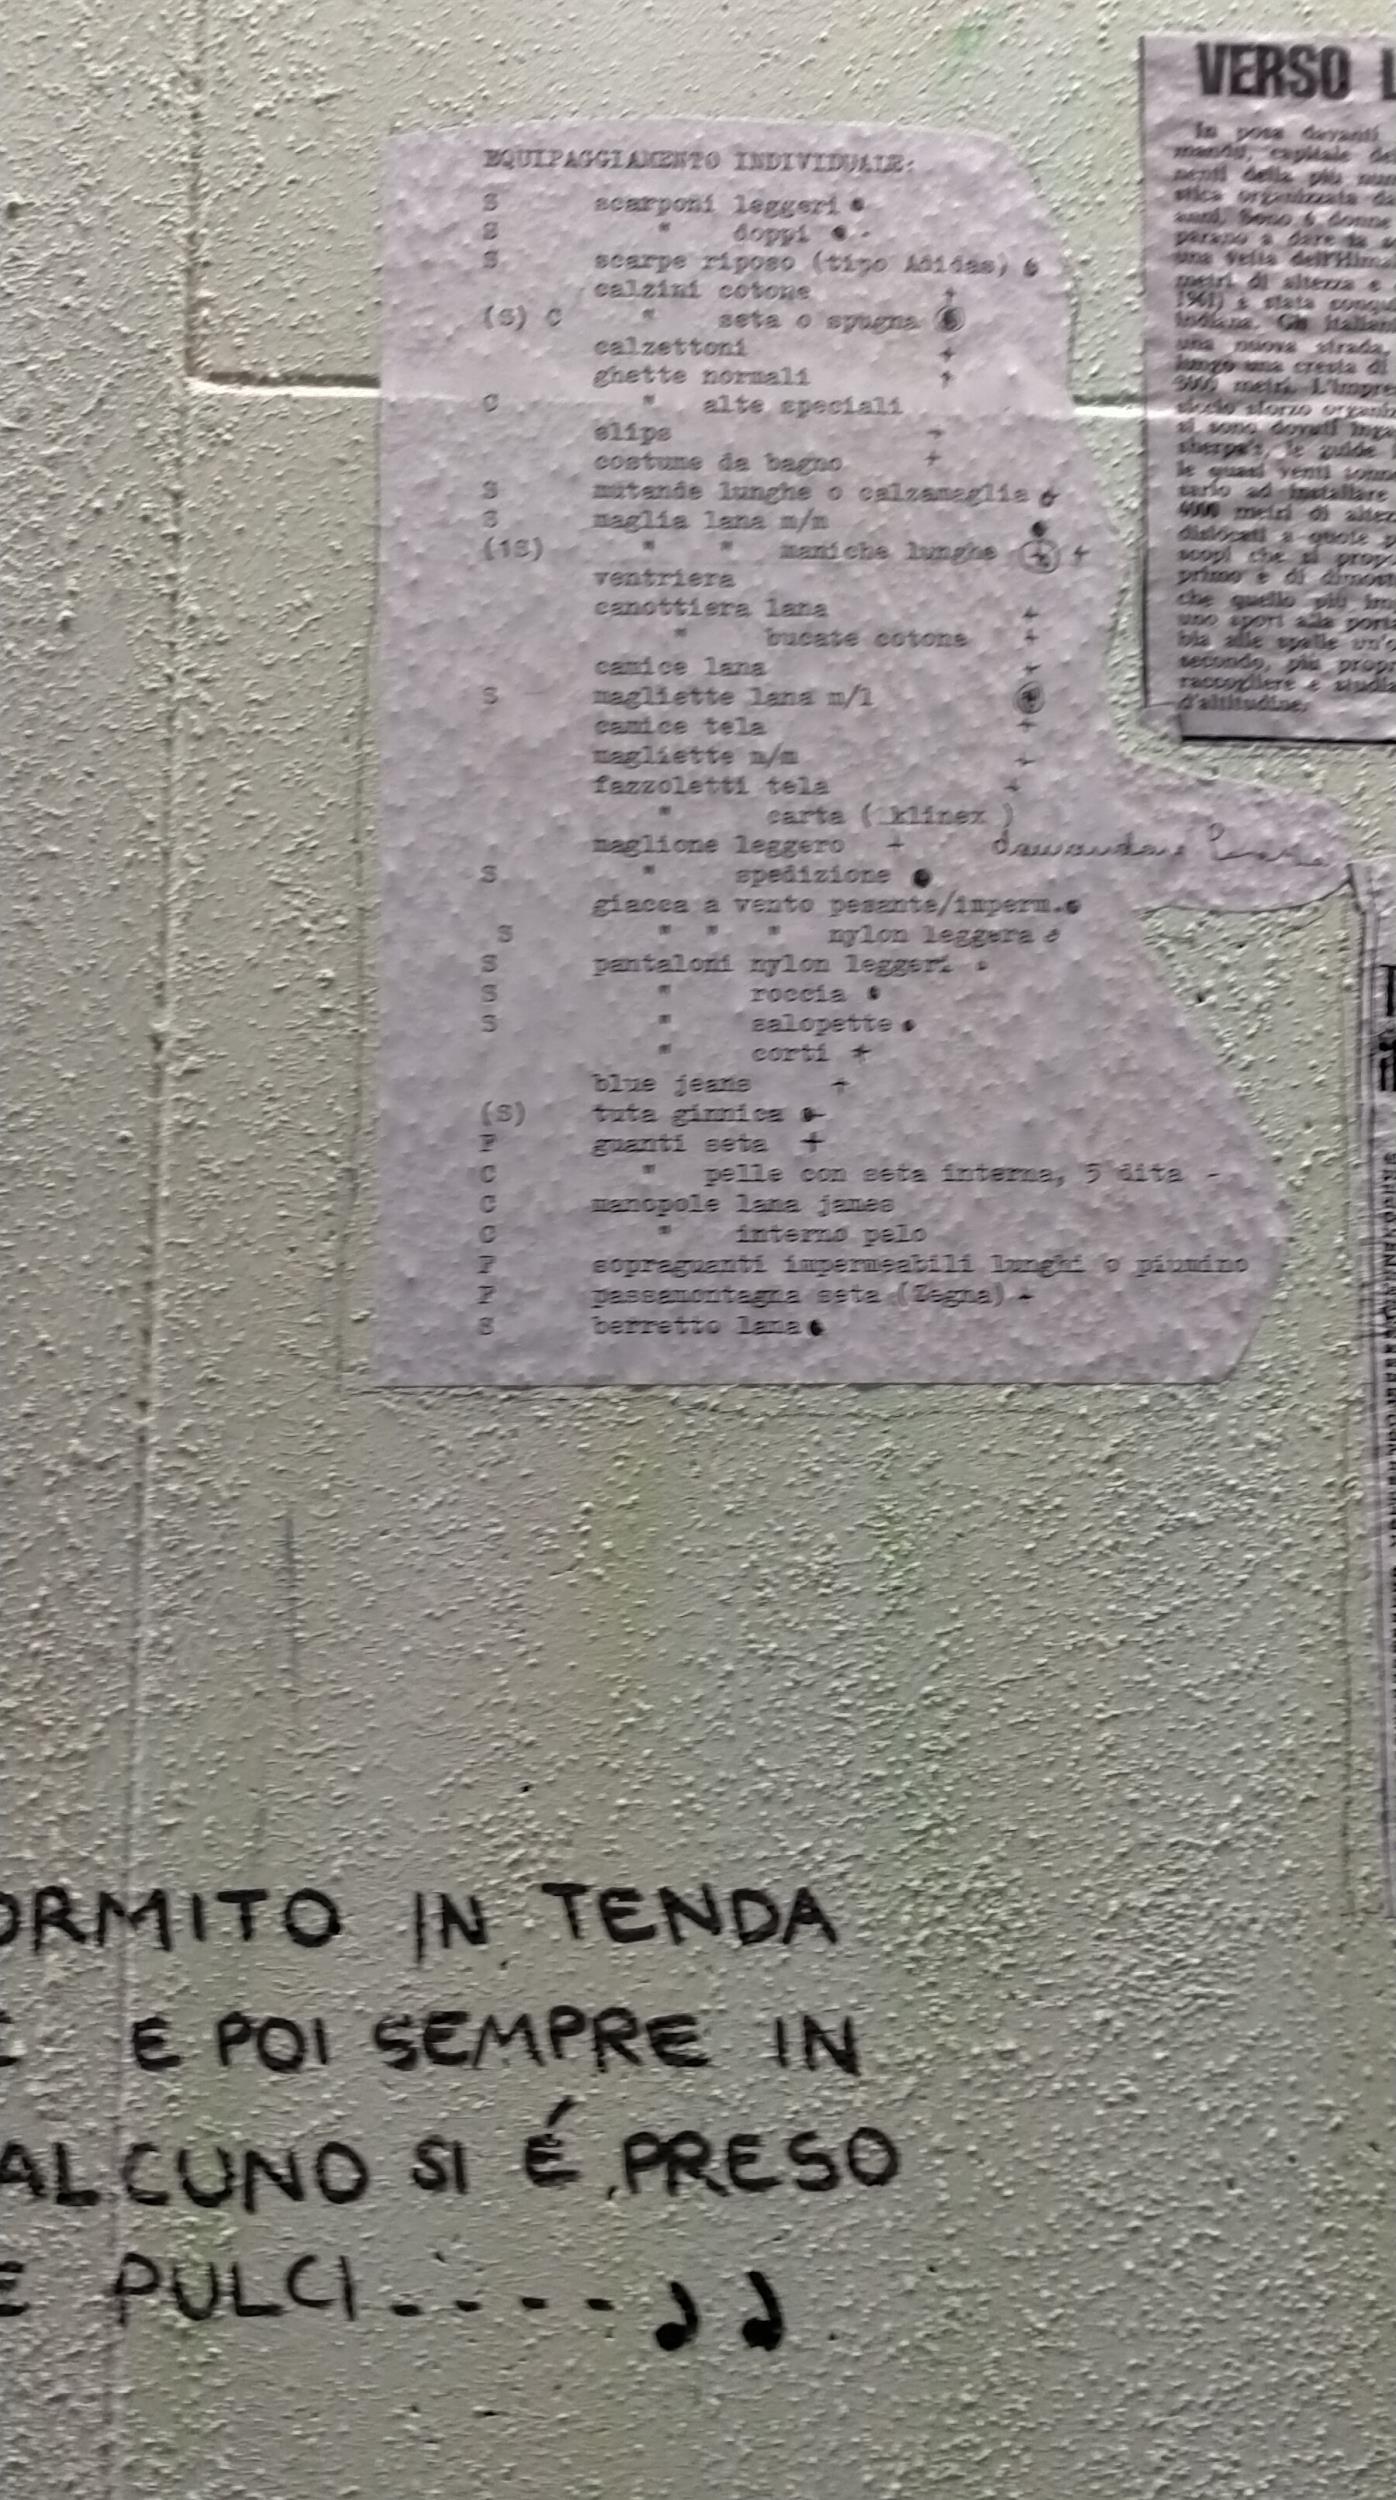 EQUIPAGGIAMENTO INDIVIDUALE:
S scarponi leggeri
S " doppi
S scarpe riposo (tipo Adidas)
calzini cotone +
(S) C " seta o spugna
calzettoni +
ghette normali +
C " alte speciali
slips
costume da bagno +
S mutande lunghe o calzamaglia
S maglia lana m/m
(1S) " " maniche lunghe +
ventriera
canottiera lana +
" bucate cotone +
camice lana
S magliette lana m/l
camice tela +
magliette m/m +
fazzoletti tela +
" carta ( klinex )
maglione leggero +
S " spedizione
giacca a vento pesante/imperm.
S " " " nylon leggera
S pantaloni nylon leggeri
S " roccia
S " salopette
" corti +
blue jeans +
(S) tuta ginnica
P guanti seta +
C " pelle con seta interna, 5 dita -
C manopole lana james
C " interno pelo
P sopraguanti impermeabili lunghi o piumino
P passamontagna seta (Zegna)
S berretto lana
VERSO L
In posa davanti
mandu, capitale de
nenti della più num
stica organizzata da
anni. Sono 6 donne
parano a dare la
una vetta dell'Himal
metri di altezza e
1961) è stata conqu
indiana. Gli italian
una nuova strada,
lungo una cresta di
5000 metri. L'impre
sforzo organiz
si sono dovuti inga
sherpa's, le guide
le quasi venti tonn
sario ad installare
4000 metri di altez
dislocati a quote p
scopi che si prop
primo è di dimost
che quello più im
uno sport alla porta
bia alle spalle un'o
secondo, più propri
raccogliere e studia
d'altitudine.
ORMITO IN TENDA
E E POI SEMPRE IN
ALCUNO SI É PRESO
E PULCI.....♩♩